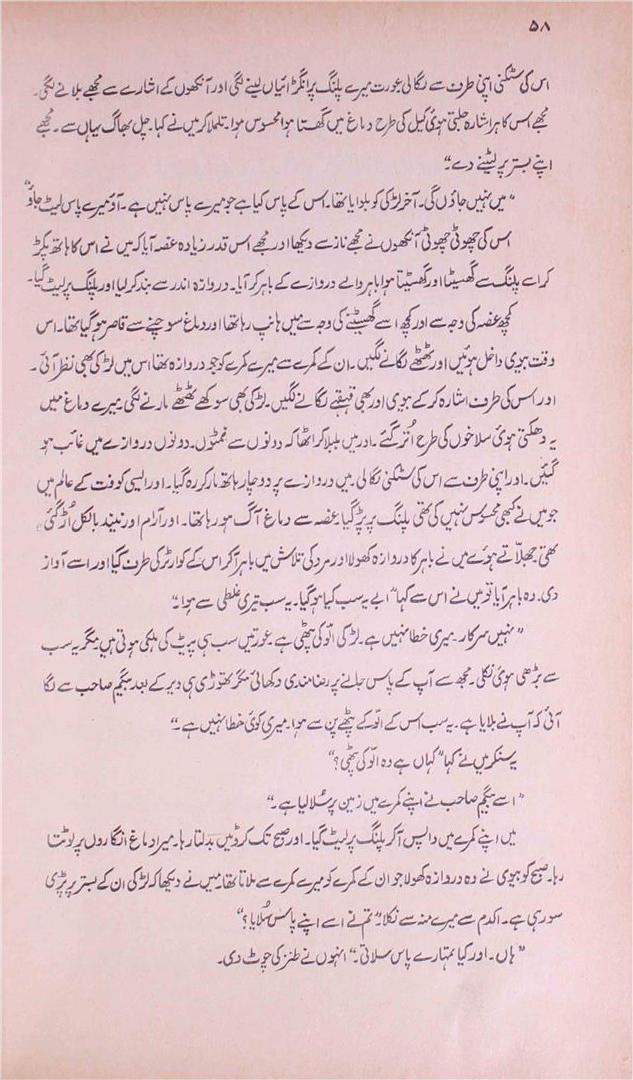 ۵۸
اس کی سٹکنی اپنی طرف سے لگالی عورت میرے پلنگ پر انگڑائیاں لینے لگی اور آنکھوں کے اشارے سے مجھے بلانے لگی۔
مجھے اس کا ہر اشارہ جلتی ہوئی کیل کی طرح دماغ میں گھستا ہوا محسوس ہوا۔ تلملا کر میں نے کہا۔ چل بھاگ یہاں سے۔ مجھے
اپنے بستر پر لیٹنے دے۔“
”میں نہیں جاؤں گی۔ آخر لڑکی کو بلوایا تھا۔ اس کے پاس کیا ہے جو میرے پاس نہیں ہے۔ آؤ میرے پاس لیٹ جاؤ“
اس کی چھوٹی چھوٹی آنکھوں نے مجھے ناز سے دیکھا اور مجھے اس قدر زیادہ غصہ آیا کہ میں نے اس کا ہاتھ پکڑ
کر اسے پلنگ سے گھسیٹا اور گھسیٹتا ہوا باہر والے دروازے کے باہر کر آیا۔ دروازہ اندر سے بند کر لیا اور پلنگ پر لیٹ گیا۔
کچھ غصہ کی وجہ سے اور کچھ اسے گھسیٹنے کی وجہ سے میں ہانپ رہا تھا اور دماغ سوچنے سے قاصر ہو گیا تھا۔ اس
وقت بیوی داخل ہوئیں اور ٹھٹھے لگانے لگیں۔ ان کے کمرے سے میرے کمرے کو جو دروازہ تھا اس میں لڑکی بھی نظر آئی۔
اور اس کی طرف اشارہ کر کے بیوی اور بھی قہقہے لگانے لگیں۔ لڑکی بھی سوکھے ٹھٹھے مارنے لگی۔ میرے دماغ میں
یہ دھکتی ہوئی سلاخوں کی طرح اُتر گئے۔ اور میں بلبلا کر اٹھا کہ دونوں سے نمٹوں۔ دونوں دروازے میں غائب ہو
گئیں۔ اور اپنی طرف سے اس کی سٹکنی لگالی۔ میں دروازے پر دو چار ہاتھ مار کر رہ گیا۔ اور ایسی کوفت کے عالم میں
جو میں نے کبھی محسوس نہیں کی تھی پلنگ پر پڑ گیا غصہ سے دماغ آگ ہو رہا تھا۔ اور آرام اور نیند بالکل اُڑ گئی
تھی جھلّاتے ہوئے میں نے باہر کا دروازہ کھولا اور مرد کی تلاش میں باہر آ کر اس کے کوارٹر کی طرف گیا اور اسے آواز
دی۔ وہ باہر آیا تو میں نے اس سے کہا ”ابے یہ سب کیا ہو گیا۔ یہ سب تیری غلطی سے ہوا۔“
”نہیں سرکار۔ میری خطا نہیں ہے۔ لڑکی الّو کی پٹھی ہے۔ عورتیں سب ہی پیٹ کی ہلکی ہوتی ہیں مگر یہ سب
سے بڑھی ہوئی نکلی۔ مجھ سے آپ کے پاس جانے پر رضا مندی دکھائی مگر تھوڑی ہی دیر کے بعد بیگم صاحب سے لگا
آئی کہ آپ نے بلایا ہے۔ یہ سب اس کے الّو کے پٹھے پن سے ہوا۔ میری کوئی خطا نہیں ہے۔“
یہ سنکر میں نے کہا ”کہاں ہے وہ الّو کی پٹھی؟“
”اسے بیگم صاحب نے اپنے کمرے میں زمین پر سُلا لیا ہے۔“
میں اپنے کمرے میں واپس آ کر پلنگ پر لیٹ گیا۔ اور صبح تک کروٹیں بدلتا رہا۔ میرا دماغ انگاروں پر لوٹتا
رہا۔ صبح کو بیوی نے وہ دروازہ کھولا جو ان کے کمرے کو میرے کمرے سے ملاتا تھا۔ میں نے دیکھا کہ لڑکی ان کے بستر پر پڑی
سو رہی ہے۔ اکدم سے میرے منہ سے نکلا ”تم نے اسے اپنے پاس سُلایا؟“
”ہاں۔ اور کیا تمہارے پاس سلاتی۔“ انہوں نے طنز کی چوٹ دی۔